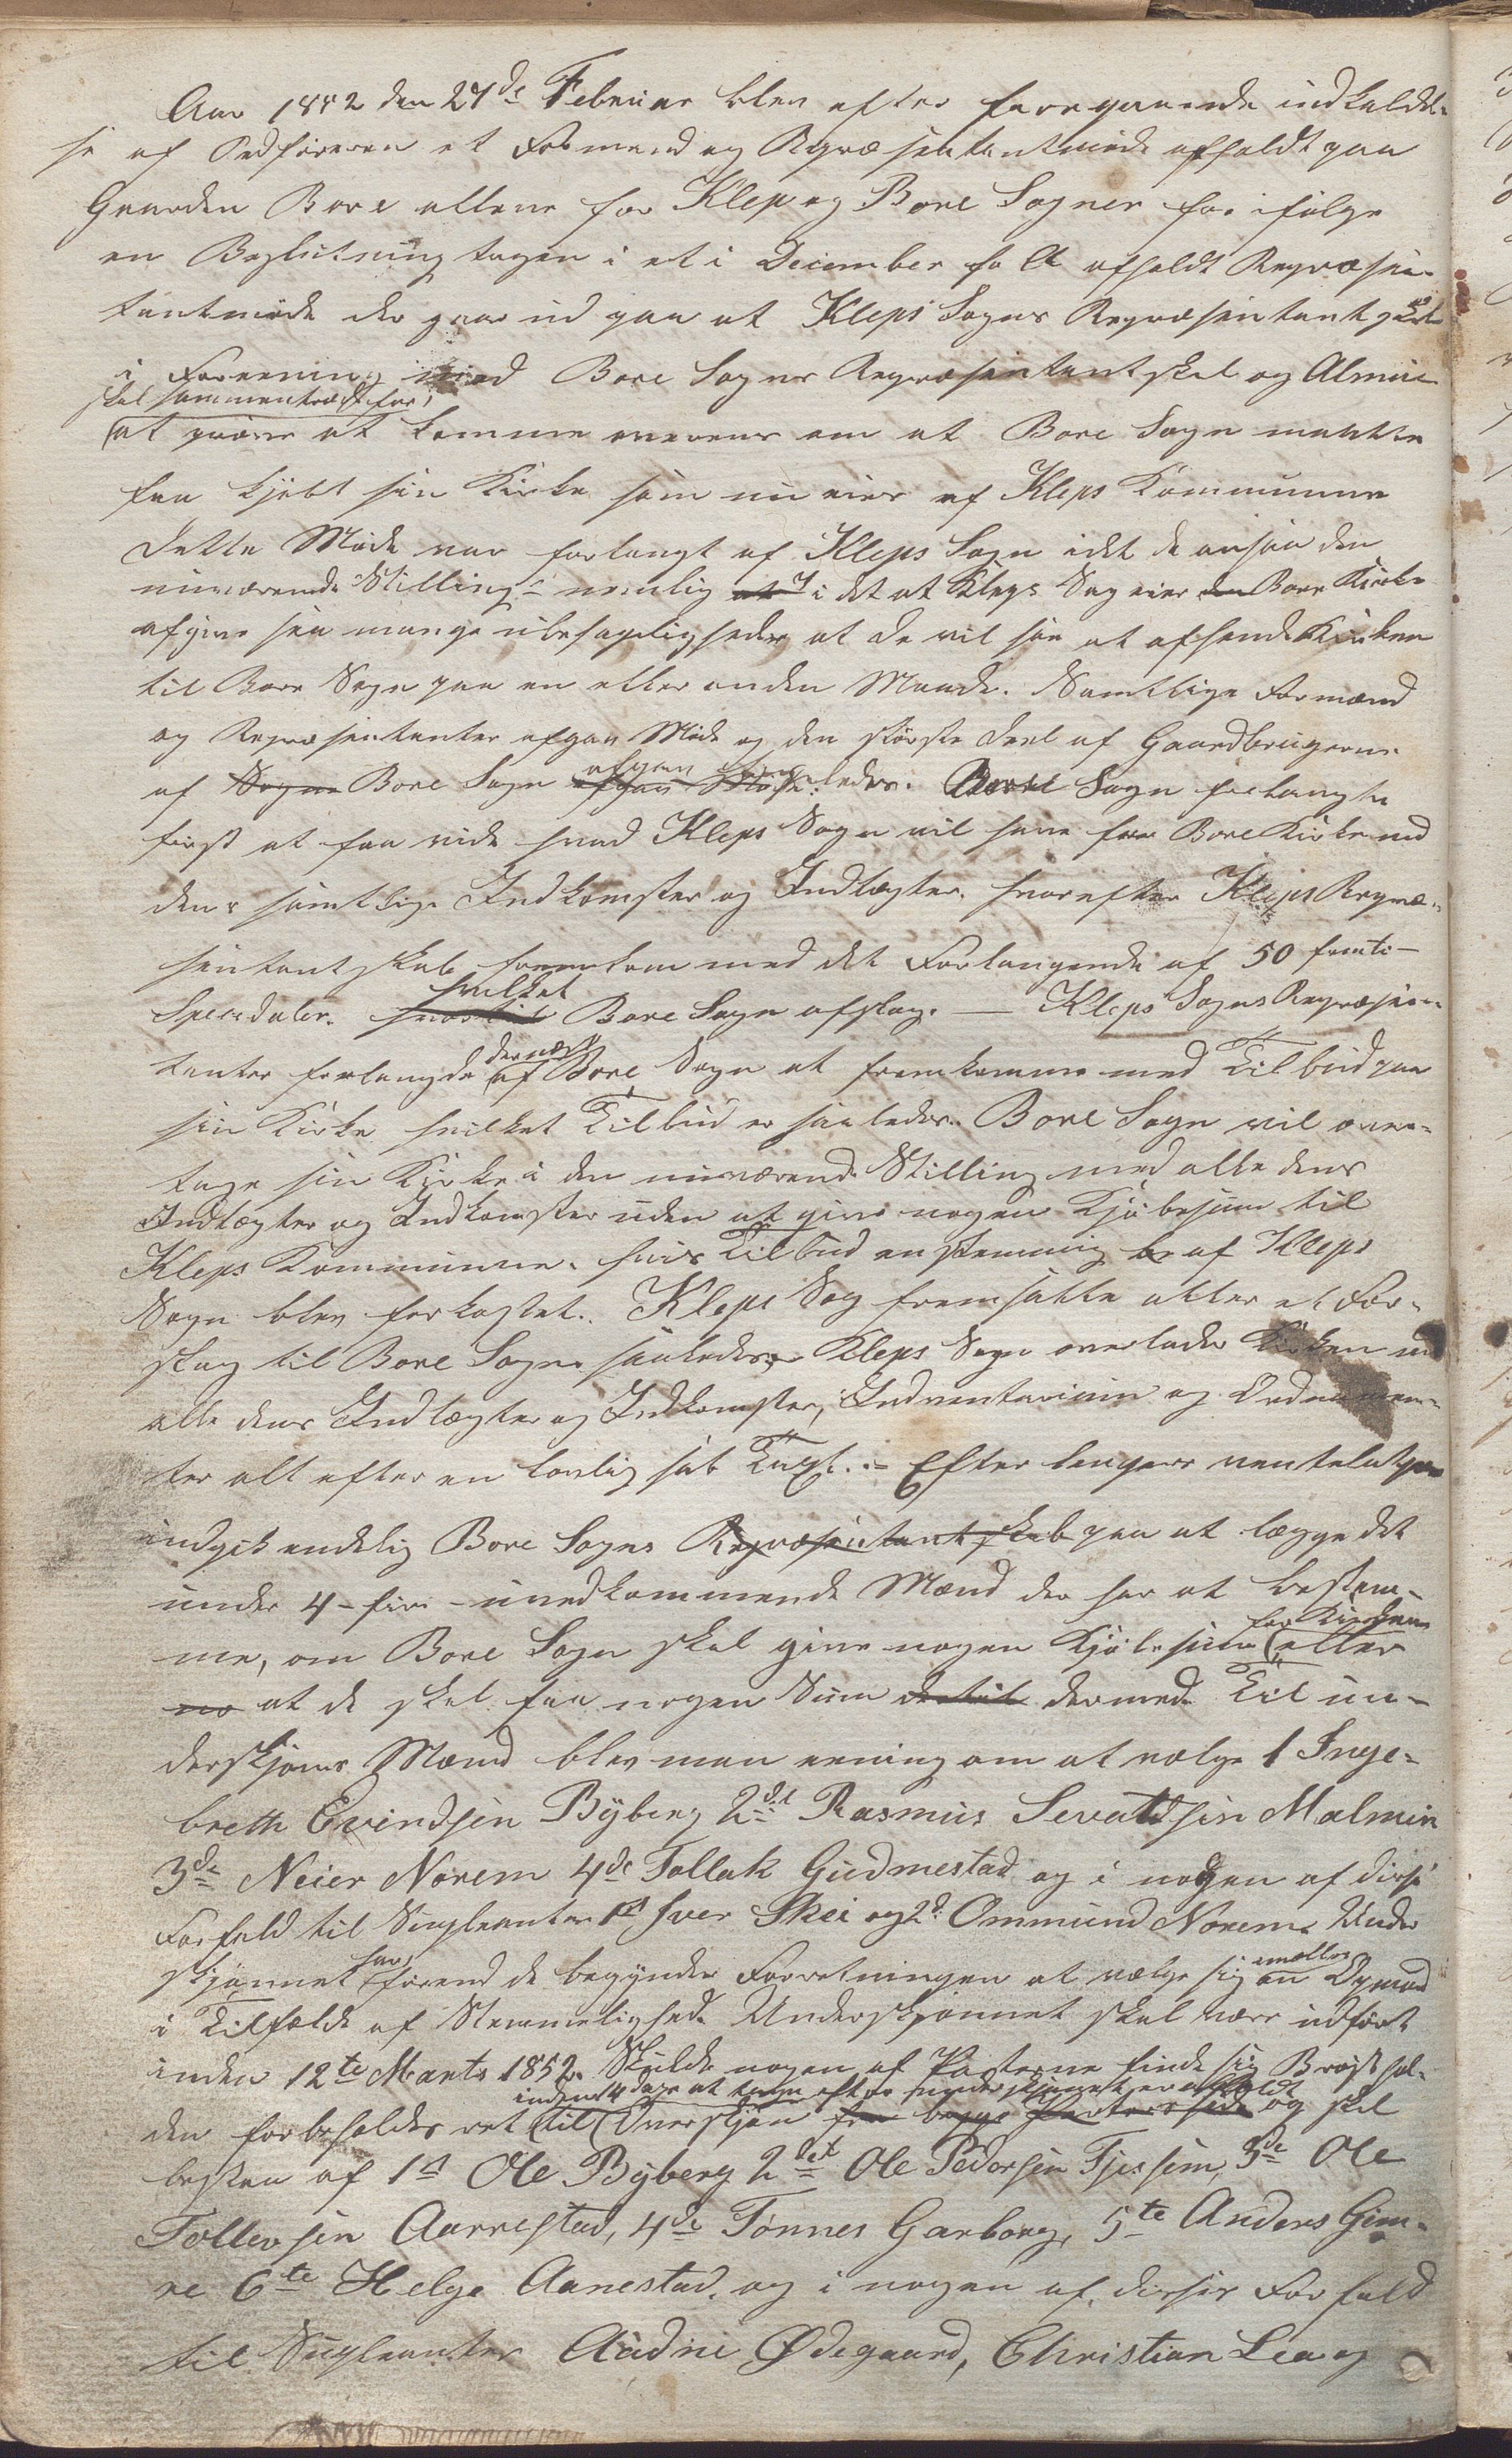 Aar 1852 den 27de Februar blev efter foregaaende indkaldel-
se af Ordføreren et Formænd og Repræsentantmøde afholdt paa
Gaarden Bore allene for Klep og Bore Sogner for ifølge
en Beslutning tagen i et i December f. A. afholdt Repræsen-
tantmøde der gaar ud paa at Kleps Sogns Repræsentantskab
i Forening med Bore Sogns Repræsentantskab og Almue
skal sammentræde for
at prøve at komme overens om at Bore Sogn maatte
faa kjøbt sin Kirke som nu eies af Kleps Kommune
dette Møde var forlangt af Kleps Sogn idet de ansaa den
nuværende Stilling - nemlig at i det at Kleps Sogn eier den Bore Kirke
afgive saa mange ubehageligheder at de vil see at afhende Kirken
til Bore Sogn paa en eller anden Maade. Samtlige Formænd
og Repræsentanter afgav Møde og den største Deel af Gaardbrugerne
af Sogne Bore Sogn afgav Møde ledes. Bore Sogn forlangte
først at faa vide hvad Kleps Sogn vil have for Bore Kirke med
dens samtlige Indkomster og Indtægter, hvorefter Kleps Repræ-
sentantskab fremkom med det Forlangende af 50 femti-
hvilket
Speciedaler. Bore Sogn afslog. — Kleps Sogns Repræsen-
dernæst
tanter forlangde af Bore Sogn at fremkomme med Tilbud paa
sin Kirke hvilket Tilbud er saaledes. Bore Sogn vil over-
tage sin Kirke i den nuværende Stilling med alle dens
Indtægter og Indkomster uden at give nogen Kjøbesum til
Kleps Kommune. hvis Tilbud enstemmig be af Kleps
Sogn blev forkastet. Kleps Sogn fremsatte atter et For-
slag til Bore Sogn saaledes Kleps Sogn overlader Kirken med
alle dens Indtægter og Indkomster, Indventarium og Ordnamen-
ter alt efter en lovlig sat Taxt. - Efter lengere
indgik endelig Bore Sogns Repræsentantskab paa at lægge det
under 4 - fire - uvedkommende Mænd der har at bestem-
for Kirken
me, om Bore Sogn skal give nogen Kjøbesum eller
at de skal faa nogen Sum dertil dermed. Til un-
derskjøns Mænd blev man eening om at vælge 1 Inge-
breth Evindsen Byberg 2det Rasmus Sevatdsen Malmin
3de Neier Norem 4de Tollak Gudmestad og i nogen af disse
Forfald til Supleanter 1st Iver Skei og 2d. Ommund Norem. Under
har emellem
skjønnet førend de begynder Forretningen at vælge sig en Opmand
i Tilfælde af Stemmelighed. Underskjønnet skal være udført
inden 12te Marts 1852. Skulde nogen af Parterne finde sig Brøsthol-
inden 4 dage at tage efter underskjønnet er afholdt
den forbeholdes ret til Overskjøn for begge Parters side og skal
bestaa af 1st Ole Byberg 2det Ole Pedersen Tjessem, 3de Ole
Tollevsen Aarrestad, 4de Tønnes Garborg, 5te Anders Gim-
re 6te Helge Aanestad, og i nogen af disses Forfald
til Supleanter Audne Ødegaard, Christian Lea og